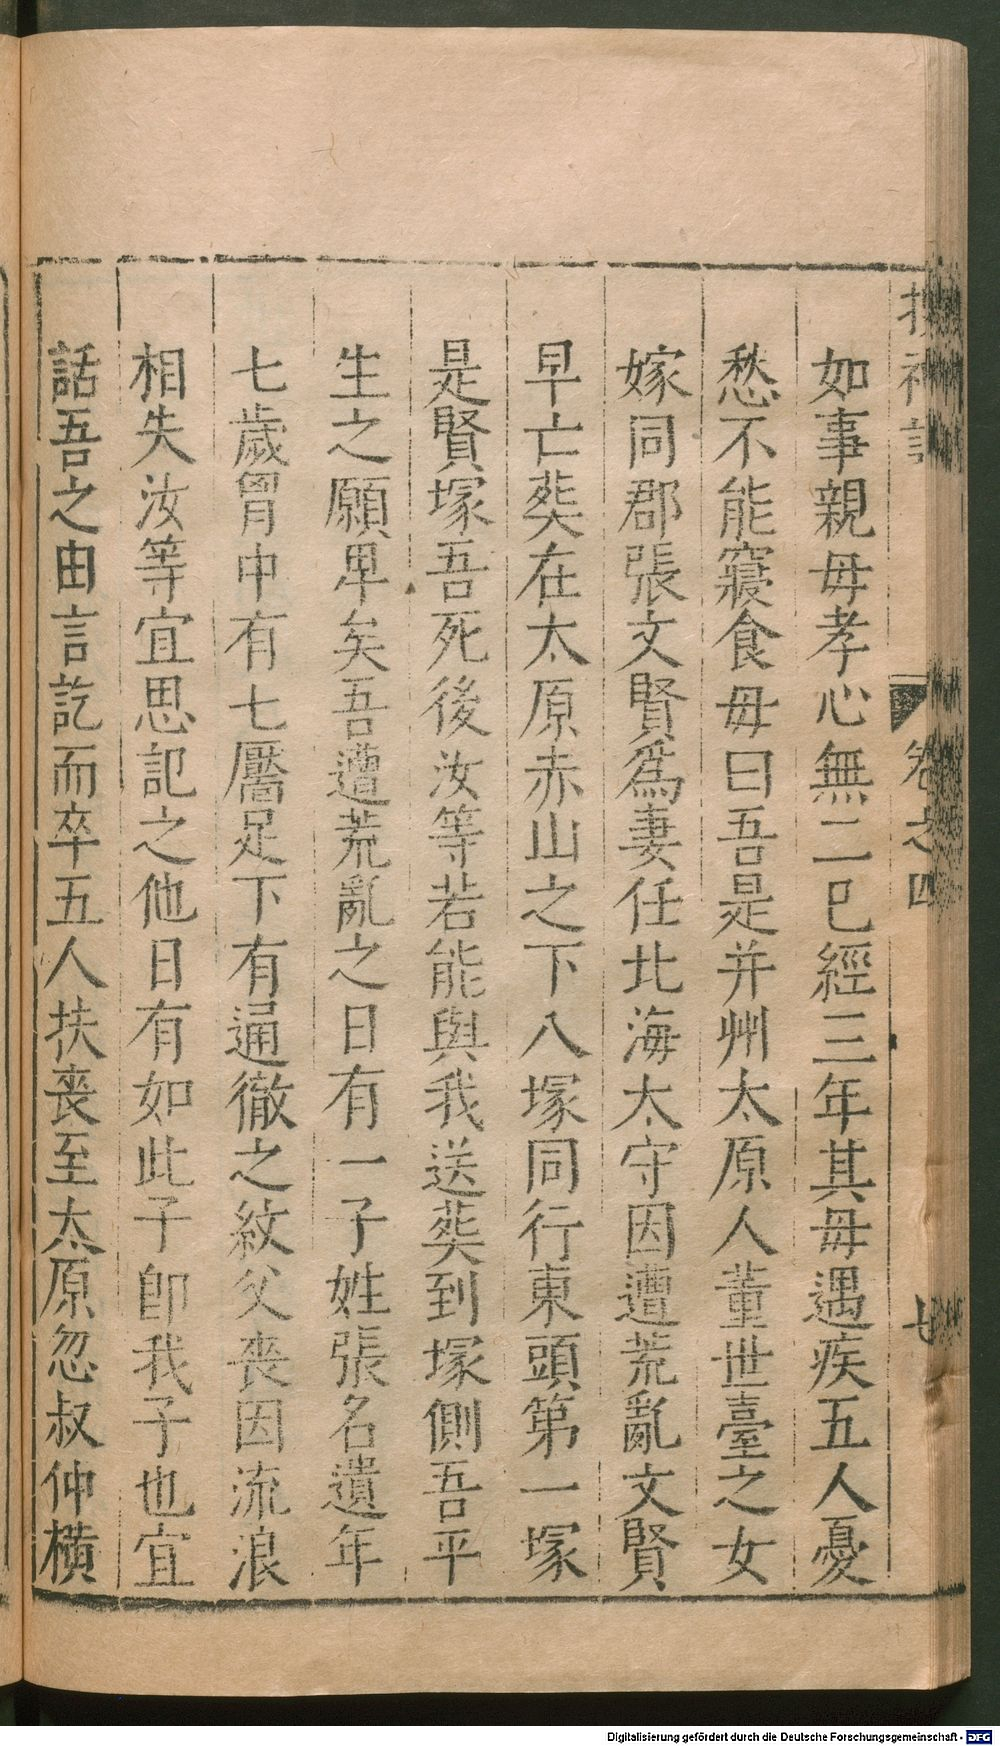 如事親母孝心無二已經三年其母遇疾五人憂
愁不能寢食母曰吾是并州太原人董世臺之女
嫁同郡張文賢爲妻任北海太守因遭荒亂文賢
早亡葬在太原赤山之下八塚同行東頭第一塚
是賢塚吾死後汝等若能與我送葬到塚側吾平
生之願畢矣吾遭荒亂之日有一子姓張名遺年
七歲胷中有七黶足下有通徹之紋父喪因流浪
相失汝等宜思記之他日有如此子卽我子也宜
話吾之由言訖而卒五人扶喪至太原忽叔仲橫
卷之四
七
Digitalisierung gefördert durch die Deutsche Forschungsgemeinschaft - DFG